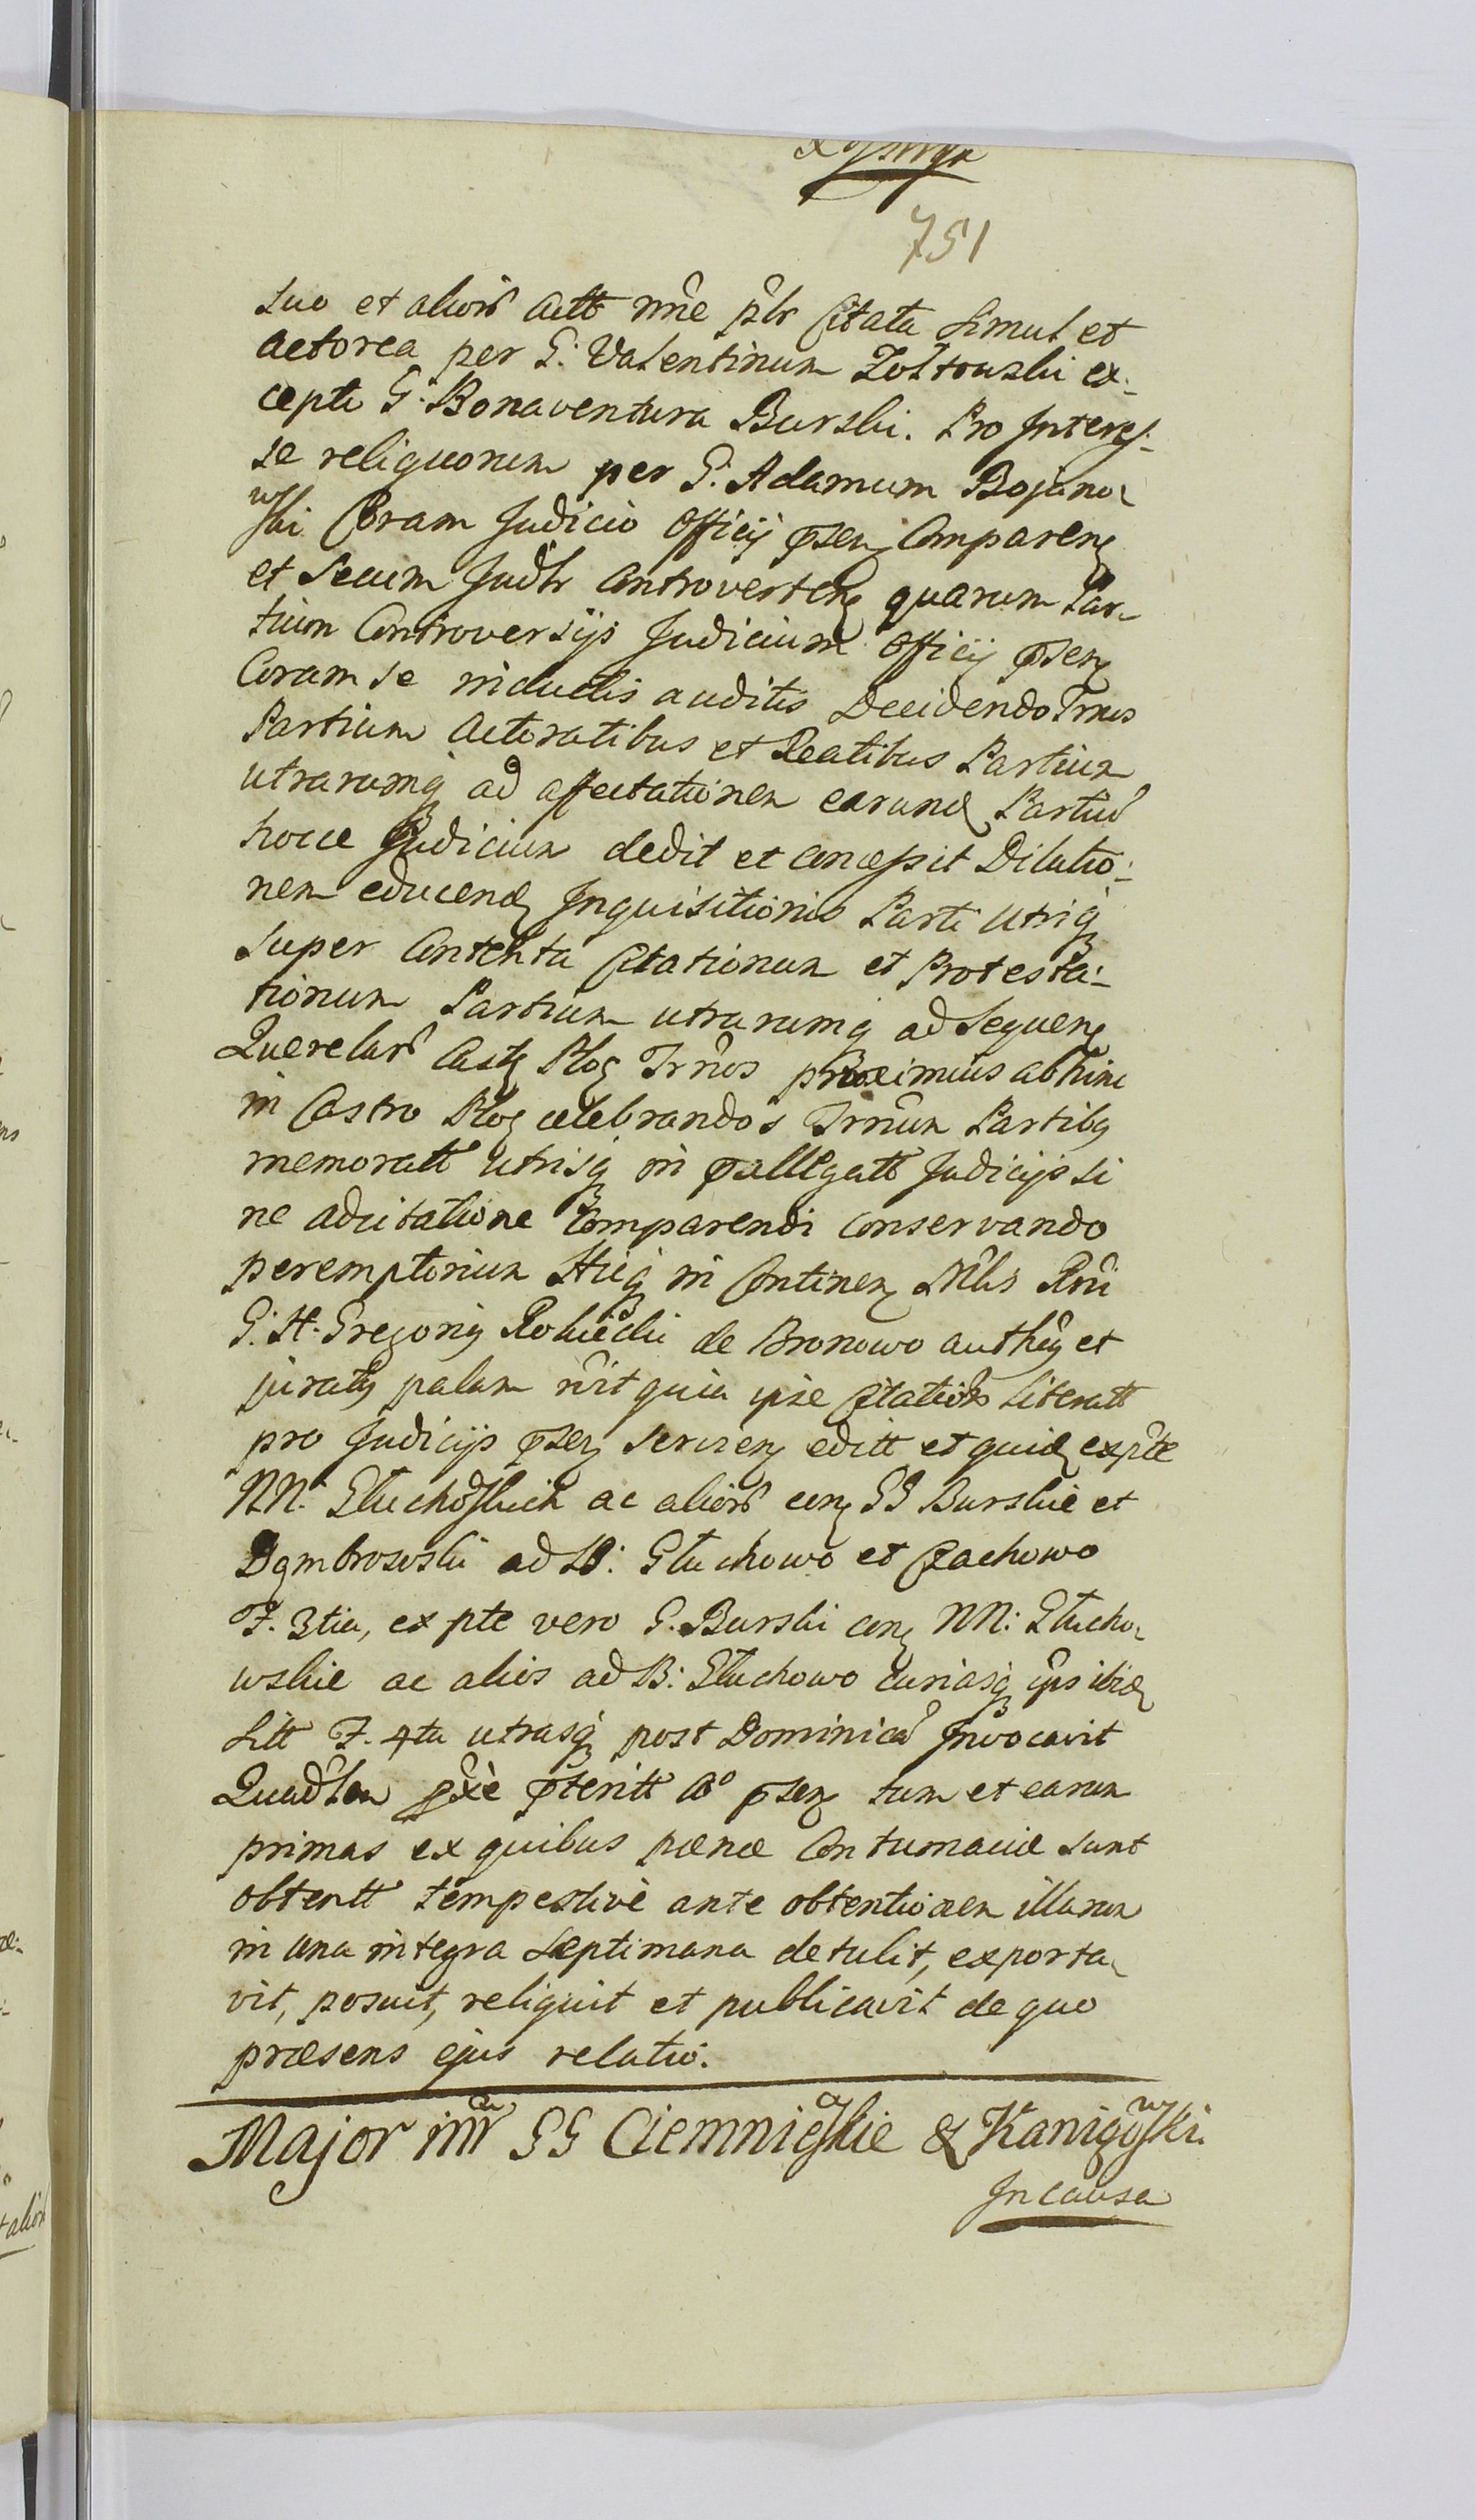 751
suo et alior̃ actt nn̄e p̃lr Citata simul et
actorea per G: Valentinum Zołtowski ex:
cepti G: Bonaventura Burski. Pro Interes:
se reliquorum per G: Adamum Bojano
wski Coram Judicio Officij p̄sen Comparen
et secum Jud̃lr Controverten quarum Par-
tium Controversijs Judicium Officij p̄sen
Coram se inductis auditis Decidendo Trnis
Partium Actoratibus et Reatibus Partium
utrarumq ad affectationem earund Partiũ
hocce Judicium dedit et concessit Dilatio:
nem educend Inquisitionis Parti utriq
super Contenta Citationum et Protesta:
tionum Partium utrarumq ad sequen
Querelar̃ Cast Ploc Trños proximius abhinc
in Castro Ploc celebrandos Trñum Partibq
memoratt utrisq in p̄allegatt Judicijs si
ne adcitatione Comparendi conservando
peremptorium Hicq in Continen Ñlis Rñi
G: H. Gregorij Rokicki de Bronowo authẽn et
juratq palam r̃vit quia ipse Citatiões Literatt
pro Judicijs p̄sen servien editt et quid exp̃te
NN: Głuchowskich ac alior̃ con GG Burskie et
Dąmbrowski ad B: Głuchowo et Czachowo
F. 3tia, ex pte vero G. Burski con NN: Głucho
wskie ac alios ad B: Głuchowo Curiasq ip̃s ibid
Sitt F. 4ta utrasq post Dominicã Invocavit
Quadlem p̃xè p̄teritt Aº p̄sen tum et earum
primas ex quibus pœnæ Contumaciæ sunt
obtentt tempestivè ante obtentionem illarum
in una integra Septimana detulit, exporta
vit, posuit, reliquit et publicavit de quo
præsens ejus relatio.
Major inr̃ GG Ciemniewskie & Kanigowski
In causa